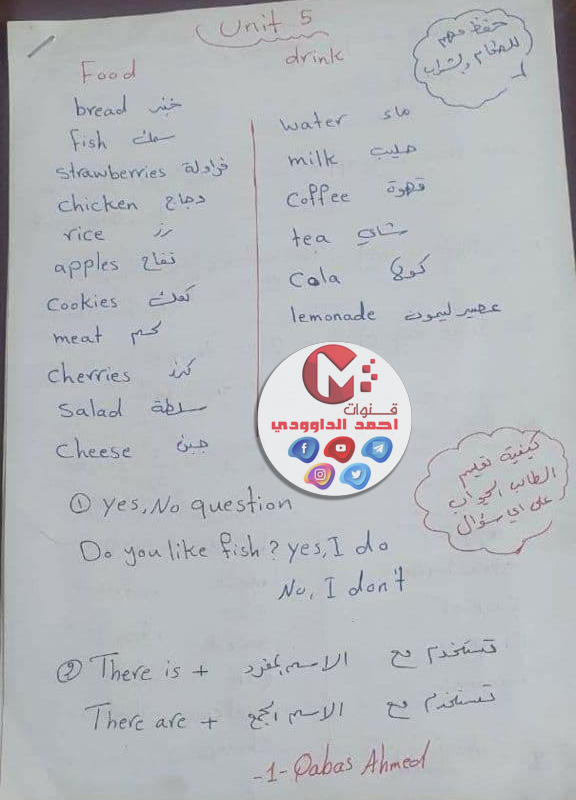 Unit 5
حفظ مهم
للطعام والشراب
Food
drink
bread خبز
fish سمك
strawberries فراولة
chicken دجاج
rice رز
apples تفاح
cookies كعك
meat لحم
cherries كرز
salad سلطة
cheese جبن
water ماء
milk حليب
coffee قهوة
tea شاي
cola كولا
lemonade عصير ليمون
M
قنوات
احمد الداوودي
كيفية تعليم
الطالب الجواب
على اي سؤال
① yes, No question
Do you like fish? yes, I do
No, I don't
② There is + الاسم المفرد تستخدم مع
There are + الاسم الجمع تستخدم مع
-1- Qabas Ahmed